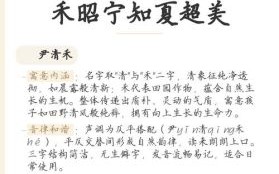 禾昭宁知夏超美
尹清禾
寓意内涵：名字取“清”与“禾”二字，清象征纯净透
彻，如晨露般清新；禾代表田园作物，蕴含自然生
长的生机。整体传递出质朴、灵动的气质，寓意孩
子如田野清风般纯粹，拥有向上生长的生命力。
音律和谐：声调为仄平搭配（尹yǐn清qīng禾
hé），平仄交替间形成自然韵律，读来朗朗上口。
三字结构简洁，无生僻字，发音流畅易记，适合日
常使用。